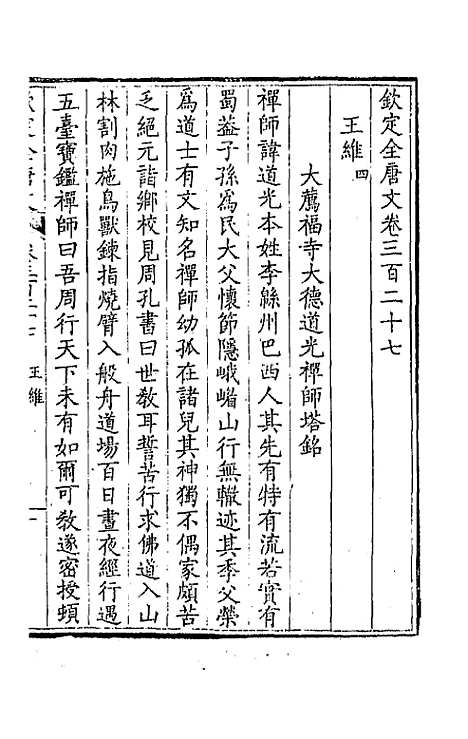 欽定全唐文卷三百二十七
王維四
大薦福寺大德道光禪師塔銘
禪師諱道光本姓李緜州巴西人其先有特有流若實有
蜀葢子孫爲民大父懷節隱峨嵋山行無轍迹其季父榮
爲道士有文知名禪師幼孤在諸兒其神獨不偶家頗苦
乏絕元詣鄉校見周孔書曰世教耳誓苦行求佛道入山
林割肉施鳥獸鍊指燒臂入般舟道場百日晝夜經行遇
五臺寶鑑禪師曰吾周行天下未有如爾可教遂密授頓
王維